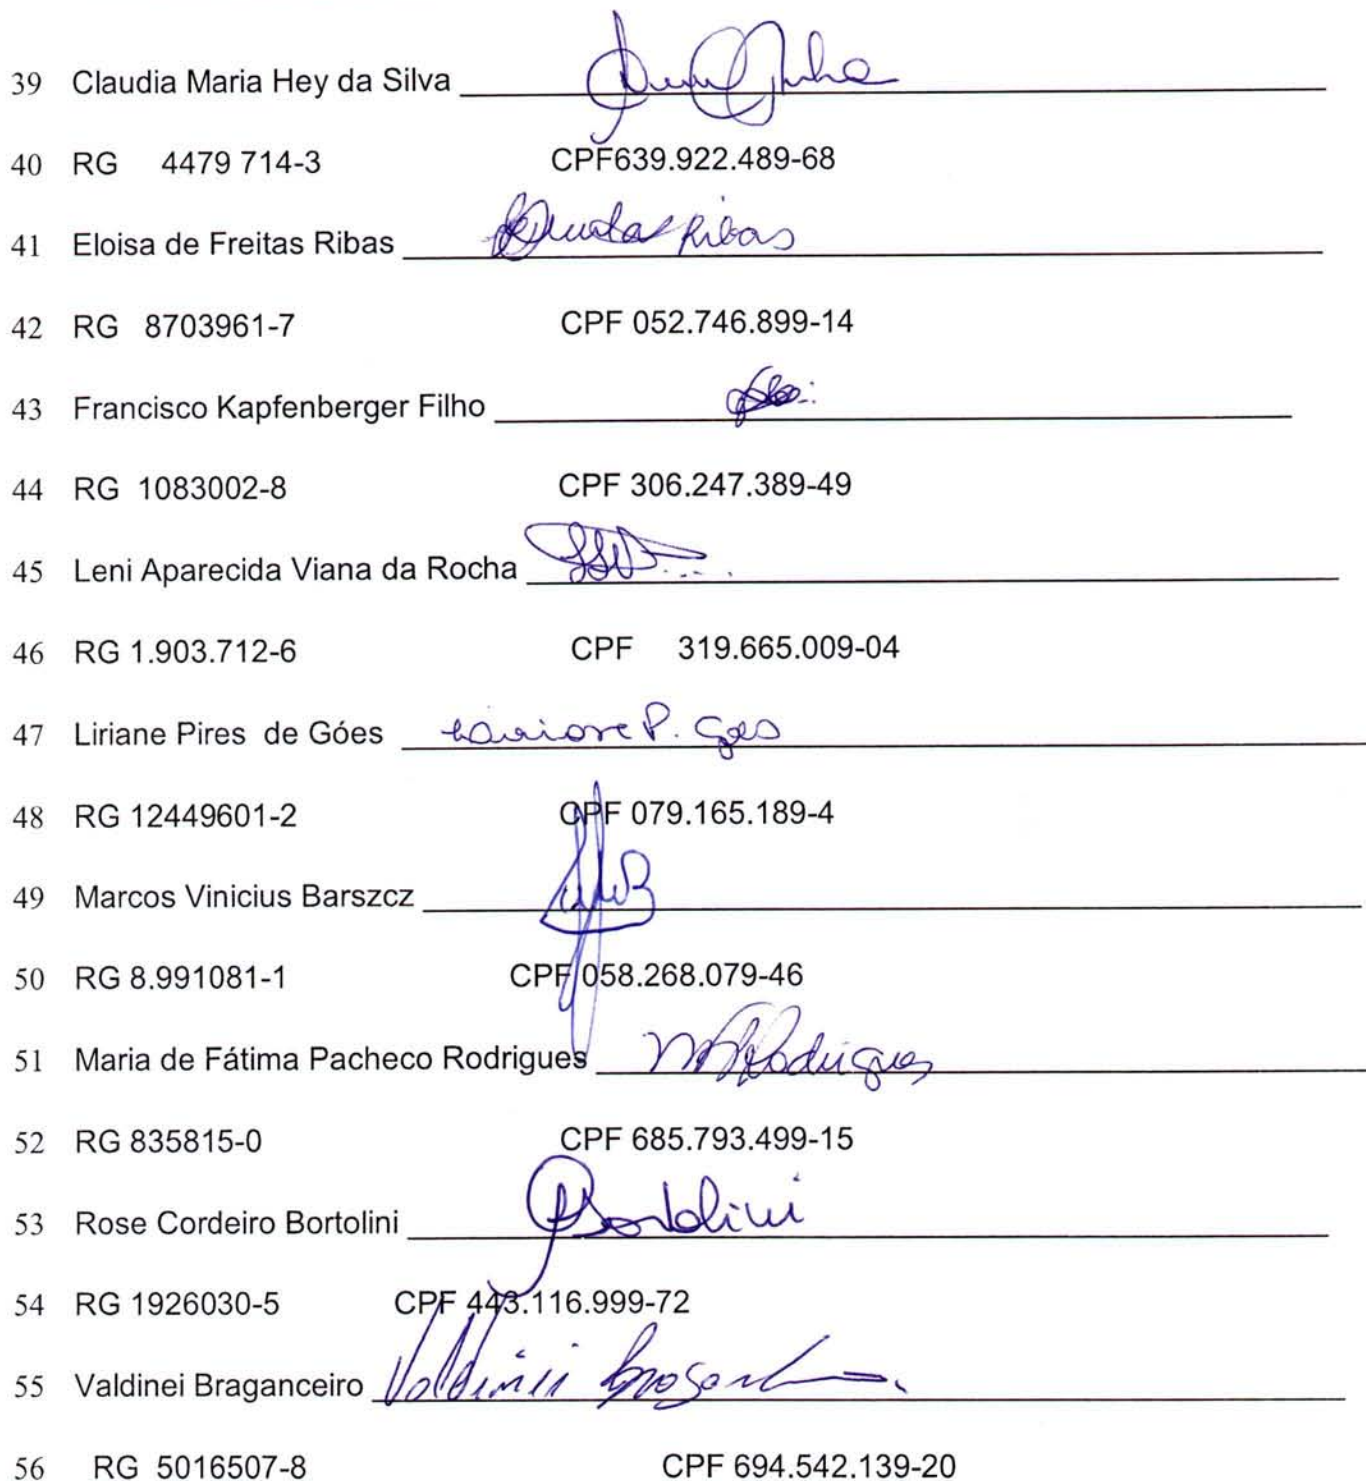 39 Claudia Maria Hey da Silva
40 RG 4479 714-3 CPF639.922.489-68
41 Eloisa de Freitas Ribas Ribas
42 RG 8703961-7 CPF 052.746.899-14
43 Francisco Kapfenberger Filho
44 RG 1083002-8 CPF 306.247.389-49
45 Leni Aparecida Viana da Rocha
46 RG 1.903.712-6 CPF 319.665.009-04
47 Liriane Pires de Góes Liriane P. Goes
48 RG 12449601-2 CPF 079.165.189-4
49 Marcos Vinicius Barszcz
50 RG 8.991081-1 CPF 058.268.079-46
51 Maria de Fátima Pacheco Rodrigues Rodrigues
52 RG 835815-0 CPF 685.793.499-15
53 Rose Cordeiro Bortolini Bortolini
54 RG 1926030-5 CPF 443.116.999-72
55 Valdinei Braganceiro Valdinei
56 RG 5016507-8 CPF 694.542.139-20